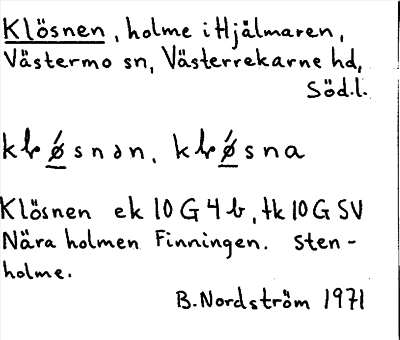 Klösnen, holme i Hjälmaren,
Västermo sn, Västerrekarne hd,
Söd.l.
klǿsnən, klǿsna
Klösnen ek 10 G 4 b, tk 10 G SV
Nära holmen Finningen. Sten-
holme.
B. Nordström 1971